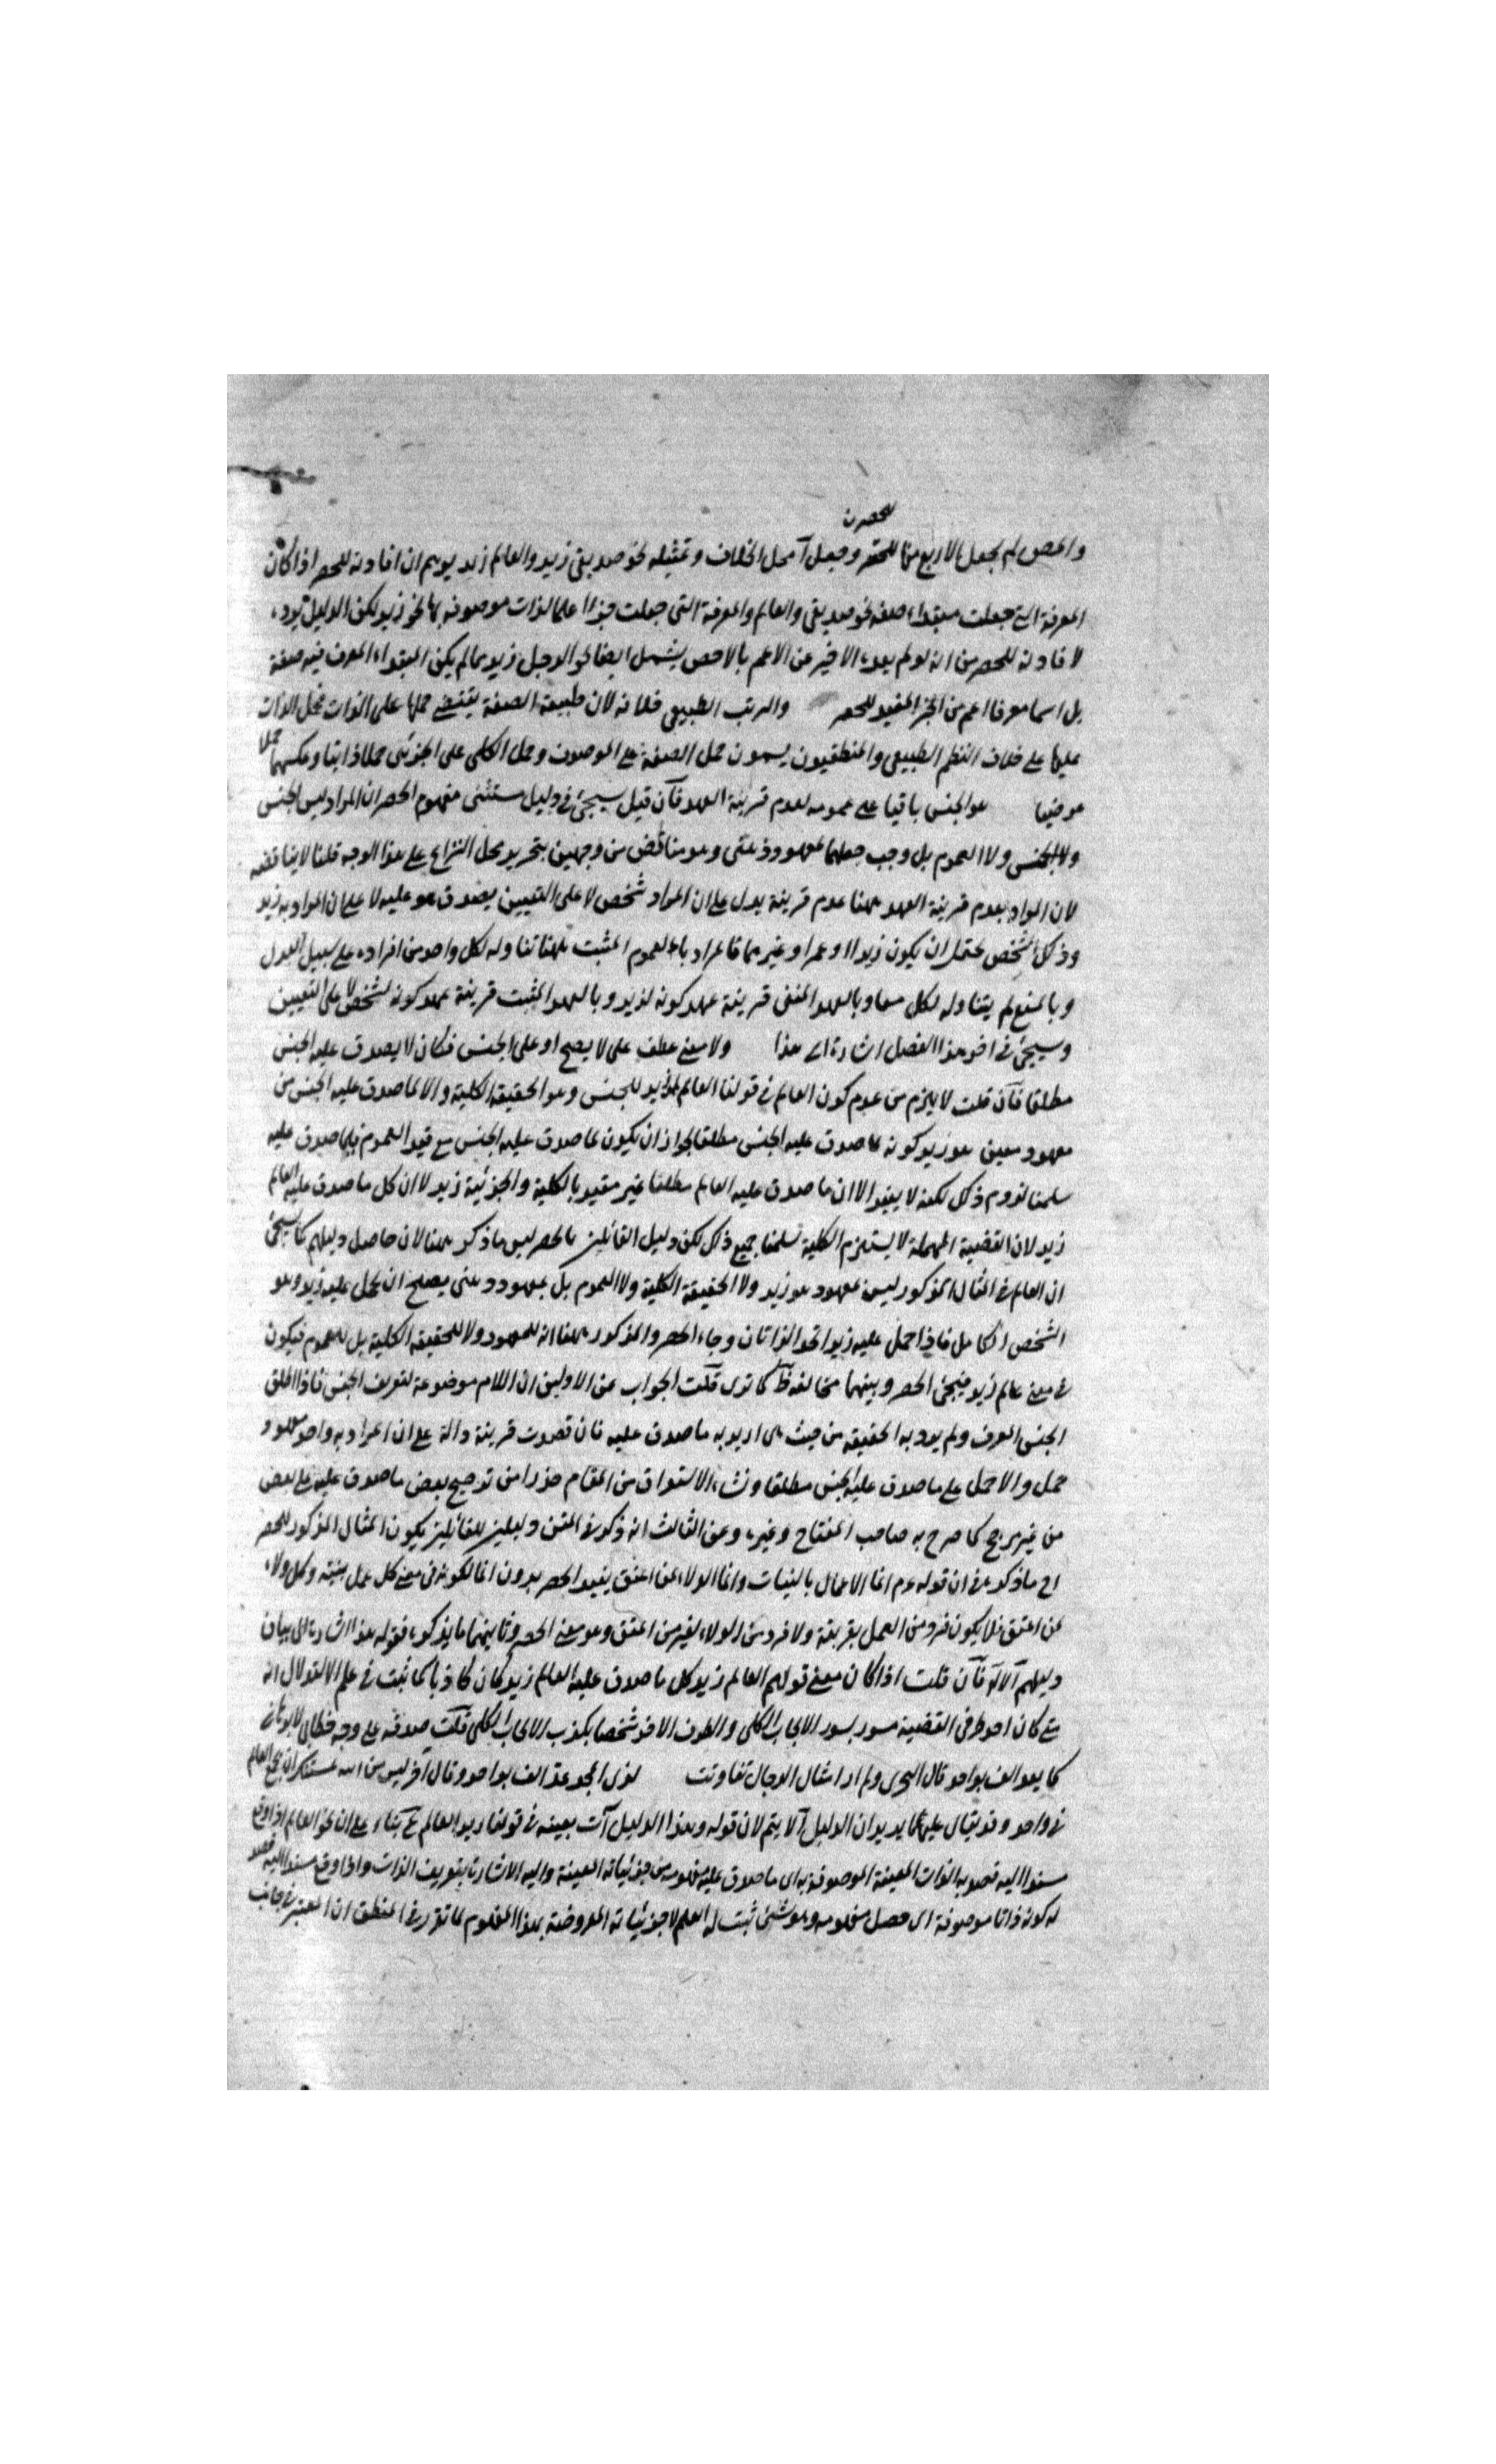 للحصر
والمص لم يجعل الاربع منها للحصر وجعل محل الخلاف وتمثيله نحو صديقي زيد والعالم زيد يوهم ان افادته للحصر اذا كان
المعرفة التي جعلت مبتداء صفة نحو صديقي والعالم والمعرفة التي جعلت خبرا علما لذات موصوفة بها نحو زيد لكن الدليل
لافادته للحصر من انه لو لم يفده الاخبر عن الاعم بالاخص يشمل ايضا نحو الرجل زيد مما لم يكن المبتداء المعرف فيه صفة
بل اسما معرفا اعم من الخبر المفيد للحصر والترتب الطبيعي خلافه لان طبيعة الصفة يقتضي حملها على الذات فحمل الذات
عليها على خلاف النظم الطبيعي والمنطقيون يسمون حمل الصفة على الموصوف وحمل الكلى على الجزئى حملا ذاتيا وعكسهما حملا
عرضيا هو الجنس باقيا على عمومه لعدم قرينة العهد فان قيل سيجئ في دليل مفهوم الحصر ان المراد ليس الجنس
ولا للجنس ولا العموم بل وجب جعلها لمعهود ذهنى وهو مناقض من وجهين بتحرير محل النزاع على هذا الوجه قلنا لا يناقضه
لان المراد بعدم قرينة العهد ههنا عدم قرينة يدل على ان المراد شخص لا على التعيين يصدق هو عليه لا على ان المراد به زيد
وذلك الشخص يحتمل ان يكون زيدا او عمرا وغيرهما فالمراد بالعموم المثبت ههنا تناوله لكل واحد من افراده على سبيل البدل
وبالمنع لم يتناوله لكل معا وبالعهد المنفى قرينة عهد كونه لزيد وبالعهد المثبت قرينة عهد كونه لشخص لا على التعيين
وسيجئ في اخر هذا الفصل اشارة الى هذا ولا معنى عطف على لا يصح او على الجنس فكان لا يصدق عليه الجنس
مطلقا فان قلت لا يلزم من عدم كون العالم في قولنا العالم زيد للجنس وهو الحقيقة الكلية و لما صدق عليه الجنس من
معهود معين هو زيد كونه لما صدق عليه الجنس مطلقا لجواز ان يكون لما صدق عليه الجنس مع قيد العموم صدق عليه
سلمنا لزوم ذلك لكنه لا يفيد الا ان ما صدق عليه العالم مطلقا غير مقيد بالكلية والجزئية زيد لا ان كل ما صدق عليه العالم
زيد لان القضية المهملة لا يستلزم الكلية سلمنا جميع ذلك لكن دليل القائلين بالحصر ليس ما ذكر ههنا لان حاصل دليلهم كما سيجئ
ان العالم في المثال المذكور ليس لمعهود هو زيد ولا الحقيقة الكلية ولا العموم بل لمعهود ذهنى يصلح ان يحمل عليه زيد وهو
الشخص الكامل فاذا حمل عليه زيد اتحد الذاتان وجاء الحصر والمذكور ههنا انه للمعهود ولا للحقيقة الكلية بل للعموم فيكون
في معنى عالم زيد فيجئ الحصر وبينهما مخالفة كما ترى قلت الجواب عن الاولين ان اللام موضوعة لتعريف الجنس فاذا اطلق
الجنس المعرف ولم يرد به الحقيقة من حيث هى اريد به ما صدق عليه فان قصدت قرينة دالة على ان المراد به واحد معهود
حمل والا حمل على ما صدق عليه الجنس مطلقا ونشاء الاستغراق من المقام حذرا من ترجيح بعض ما صدق عليه على بعض
من غير مرجح كما صرح به صاحب المفتاح وغيره وعن الثالث انه ذكر في المتن دليلين للقائلين بكون المثال المذكور للحصر
ما ذكر في ان قوله عم انما الاعمال بالنيات وانما الولاء لمن اعتق يفيد الحصر بدون انما لكونه في معنى كل عمل بنية وكل ولاء
لمن اعتق فلا يكون فرد من العمل بغير نية ولا فرد من الولاء لغير من اعتق وهو معنى الحصر وثانيهما ما يذكره فقوله هذا اشارة الى بيان
دليلهم الاول فان قلت اذا كان معنى قولهم العالم زيد كل ما صدق عليه العالم زيد كان كاذبا كما ثبت في علم الاستدلال انه
متى كان احد طرفى القضية مسور بسور الايجاب الكلى والطرف الاخر شخصا يكذب الايجاب الكلى قلت صدقه على وجه خطابى لا برهاني
كما يعد الف بواحد قال البحرى ولم ار امثال الرجال تفاوتت لدى المجد عد الف بواحد وقال آخر ليس من الله بمستنكر ان يجمع العالم
في واحد وقد يقال عليه يريد ان الدليل لا يتم لان قوله وهذا الدليل آت بعينه في قولنا زيد العالم بناء على ان نحو العالم اذا وقع
مسندا اليه قصد به الذات المعينة الموصوفة به اى ما صدق عليه مفهومه من جزئياته المعينة واليه الاشارة بتعريف الذات واذا وقع مسندا قصد
له كونه ذاتا موصوفة اى حصل مفهومه وهو شئ ثبت له العلم لا جزئياته المعروضة بهذا المفهوم لما تقرر في المنطق ان المعتبر في جانب